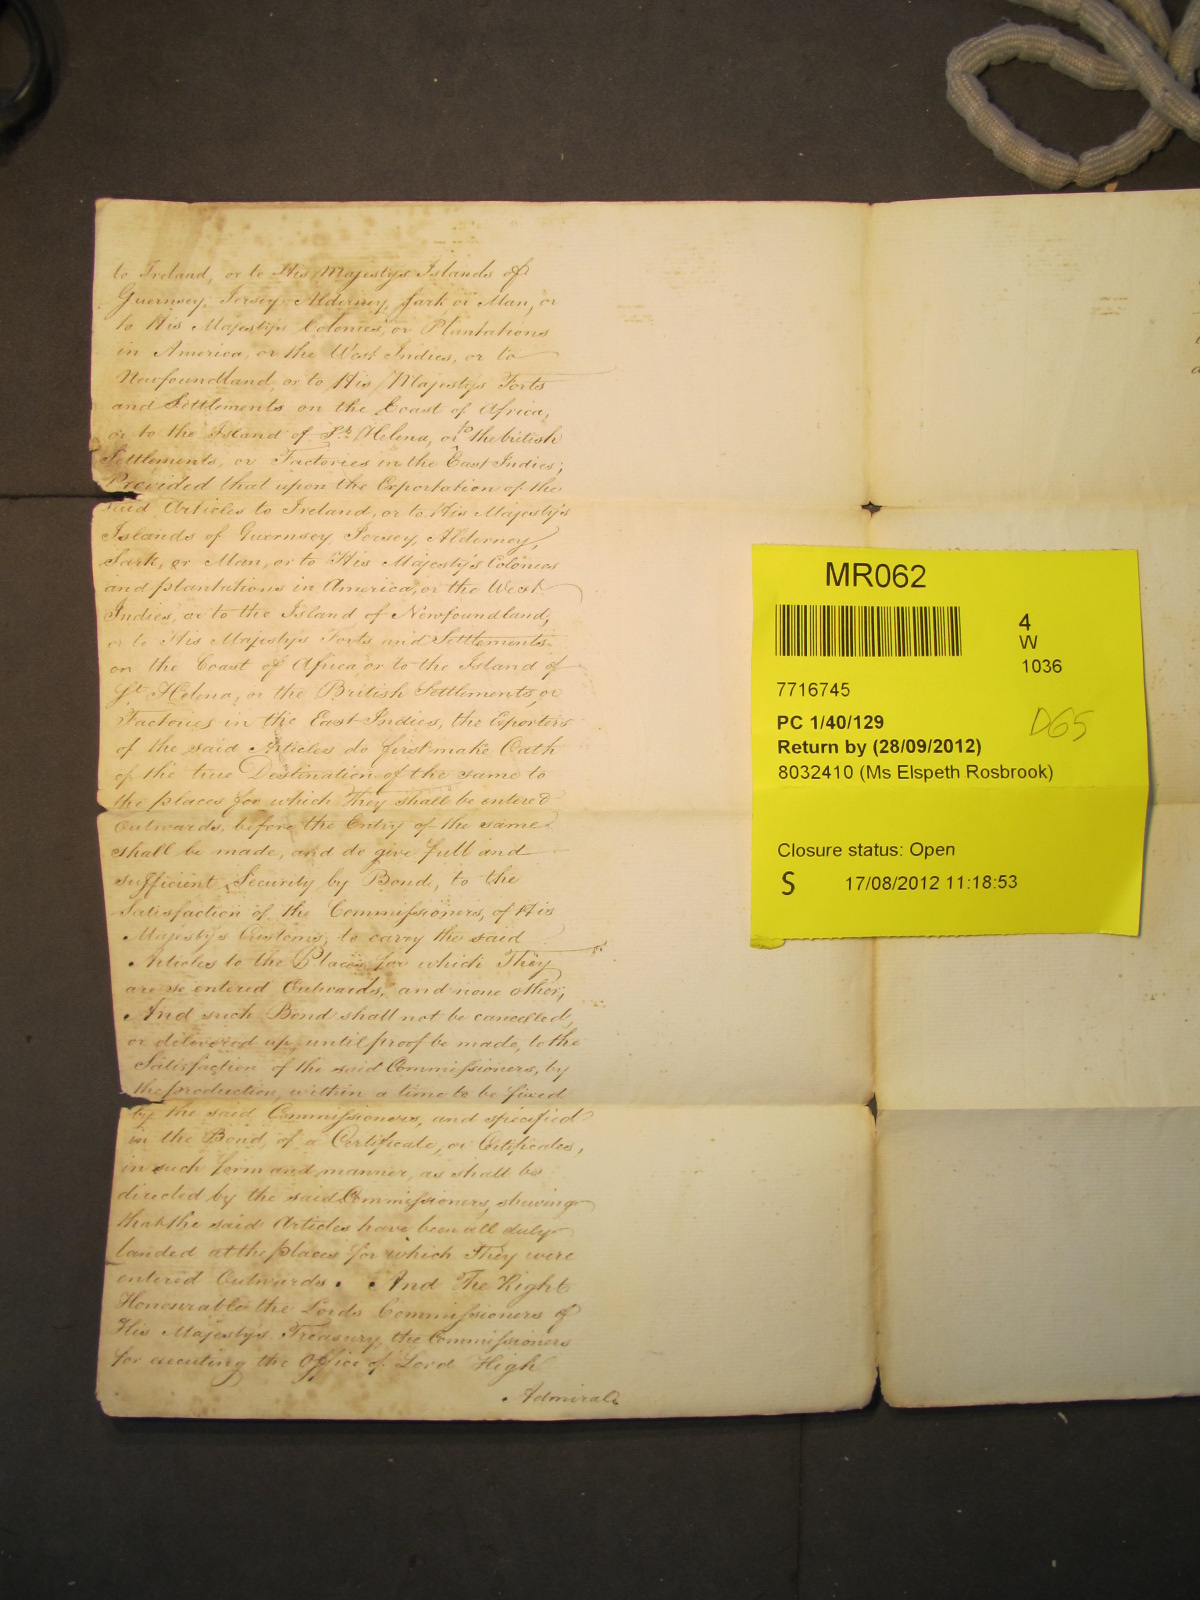 to Ireland, or to His Majestys Islands of
Guernsey, Jersey, Alderney, Sark or Man, or
to His Majestys Colonies, or Plantations
in America, or the West Indies, or to
Newfoundland, or to His Majestys Forts
and Settlements on the Coast of Africa,
or to the Island of St. Helena, or to the british
Settlements, or Factories in the East Indies;
Provided that upon the Exportation of the
said Articles to Ireland, or to His Majesty's
Islands of Guernsey Jersey, Alderney,
Sark, or Man, or to His Majesty's Colonies
and plantations in America, or the West
Indies, or to the Island of Newfoundland,
or to His Majesty's Forts and Settlements
on the Coast of Africa or to the Island of
St. Helena, or the British Settlements, or
Factories in the East Indies, the Exporters
of the said Articles do first make Oath
of the true Destination of the same to
the places for which They shall be entered
Outwards, before the Entry of the same
shall be made, and do give full and
sufficient Security by Bond, to the
Satisfaction of the Commissioners, of His
Majesty's Customs, to carry the said
Articles to the Places for which They
are so entered Outwards, and none other,
And such Bond shall not be cancelled,
or delivered up, until proof be made, to the
Satisfaction of the said Commissioners, by
the production, within a time to be fixed
by the said Commissioners, and specified
in the Bond, of a Certificate, or Certificates,
in such form and manner, as shall be
directed by the said Commissioners, shewing
that the said Articles have been all duly
landed at the places for which They were
entered Outwards. And The Right
Honourable the Lords Commissioners of
His Majestys Treasury, the Commissioners
for executing the Office of Lord High
Admiral
MR062
4
W
1036
7716745
PC 1/40/129
D65
Return by (28/09/2012)
8032410 (Ms Elspeth Rosbrook)
Closure status: Open
S 17/08/2012 11:18:53